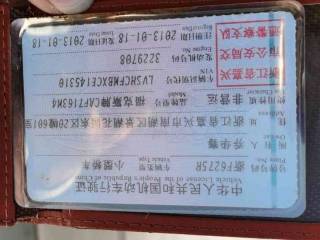 中华人民共和国机动车行驶证
Vehicle License of the People's Republic of China
号牌号码 浙F6275R 车辆类型 小型轿车
Plate No. Vehicle Type
所有人 乔华秀
Owner
住址 嘉兴市南湖区
使用性质 非营运 品牌型号 福克斯牌CAF7163M4
Use Character Model
浙江省嘉兴 车辆识别代号 LVSHCFMB
VIN
市公安局交 发动机号码 3229708
Engine No.
通警察支队 注册日期 2013-01-18 发证日期 2013-01-18
Register Date Issue Date